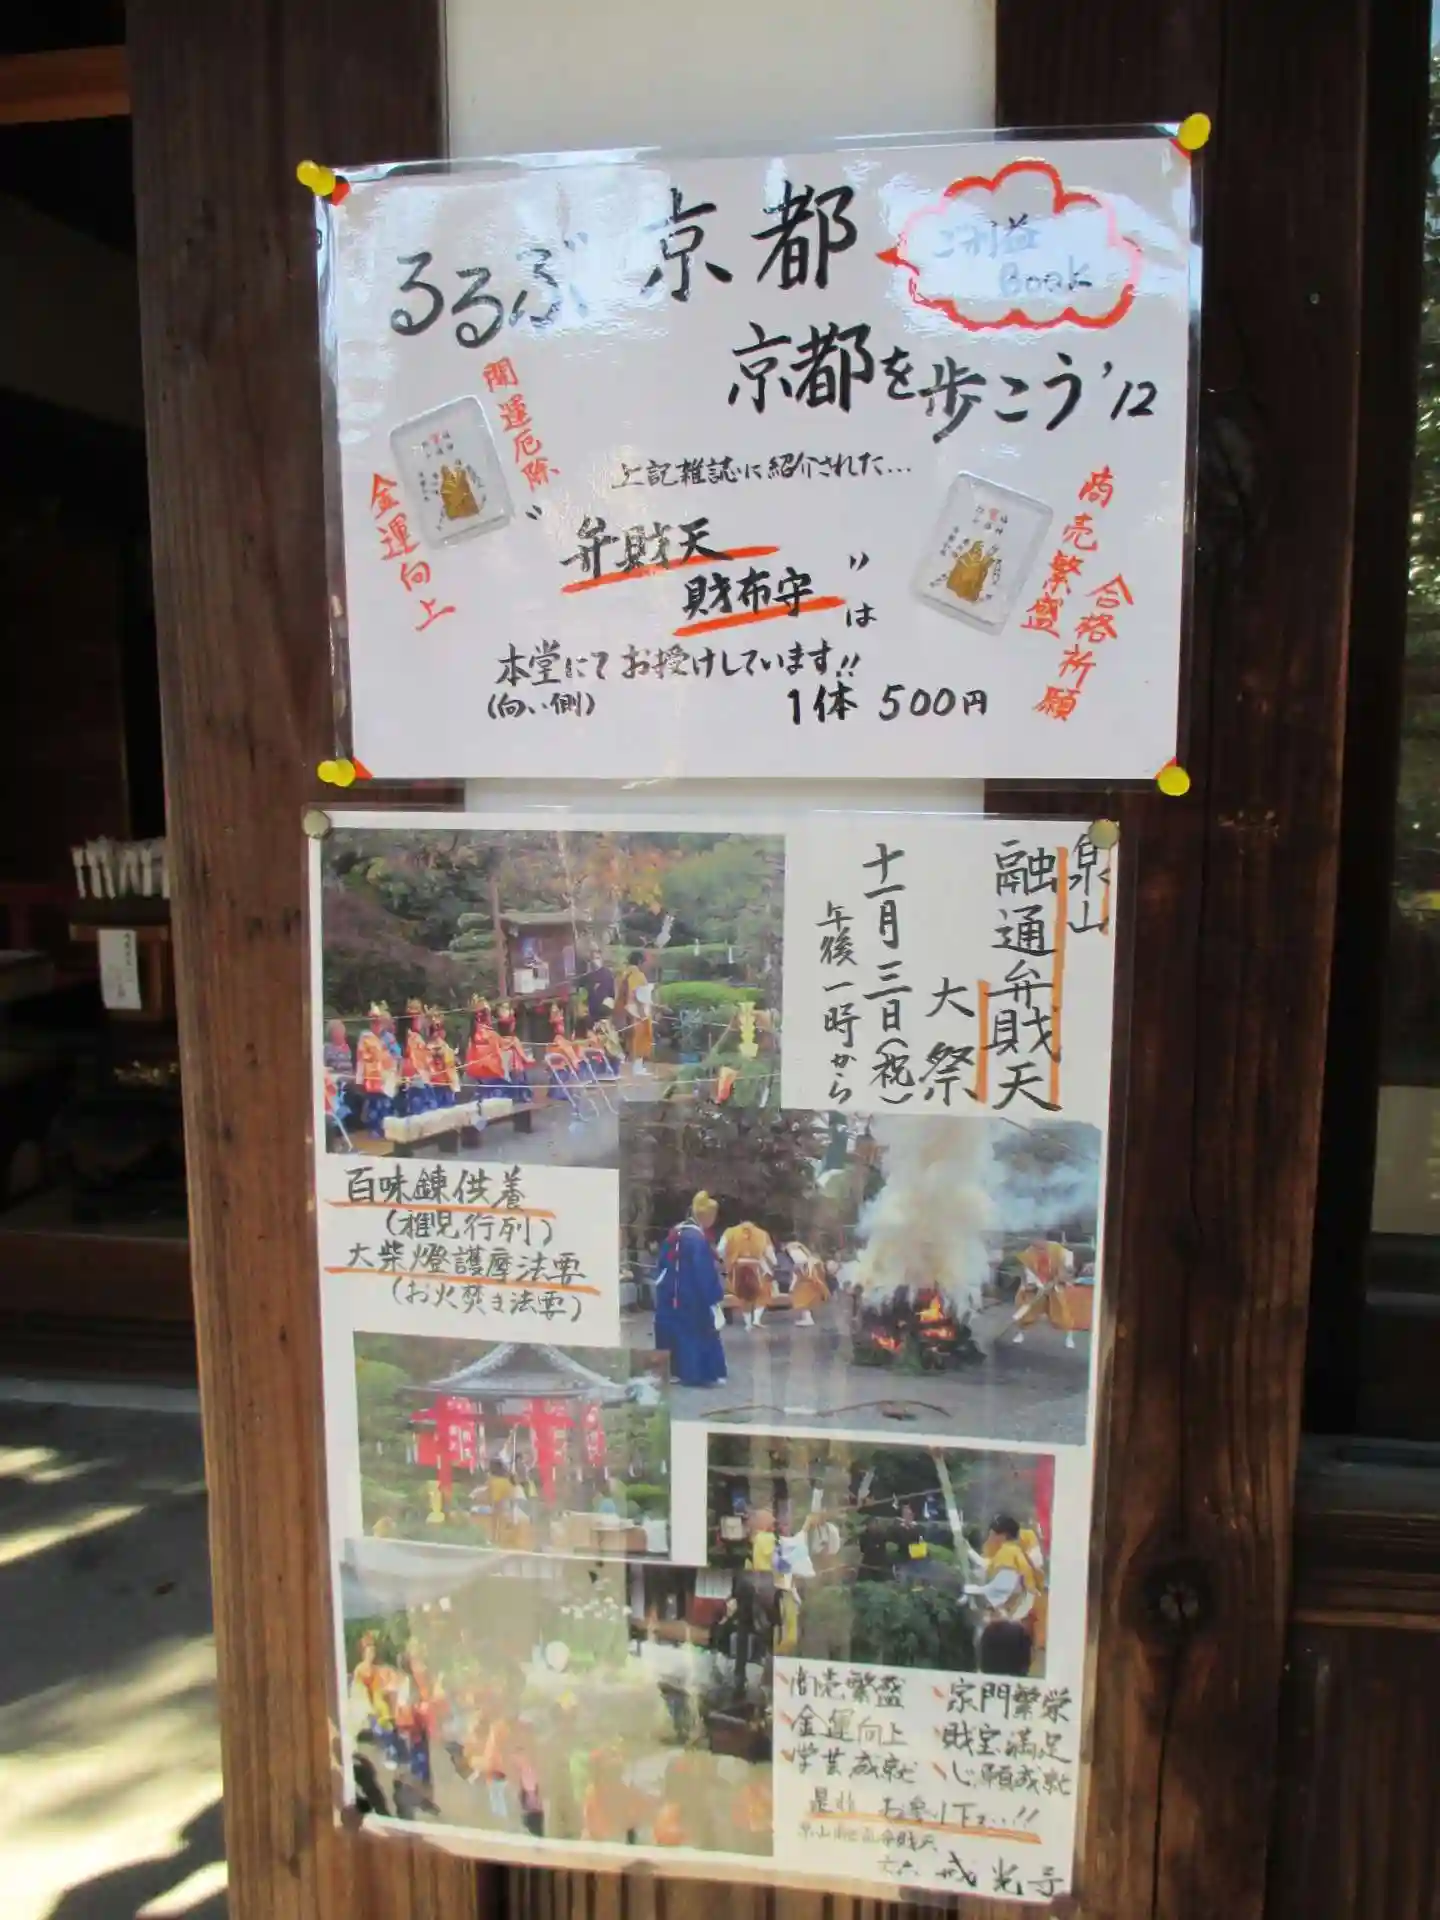 るるぶ 京都
ご利益
Book
京都を歩こう'12
開運厄除
金運向上
上記雑誌に紹介された…
商売繁盛
合格祈願
"弁財天
財布守"は
本堂にてお授けしています!!
(向い側)
1体 500円
泉山
融通弁財天
大祭
十一月三日(祝)
午後一時から
百味錬供養
(稚児行列)
大柴燈護摩法要
(お火焚き法要)
商売繁盛
金運向上
学芸成就
家門繁栄
財宝満足
心願成就
是非 お参り下さい!!
戒光寺